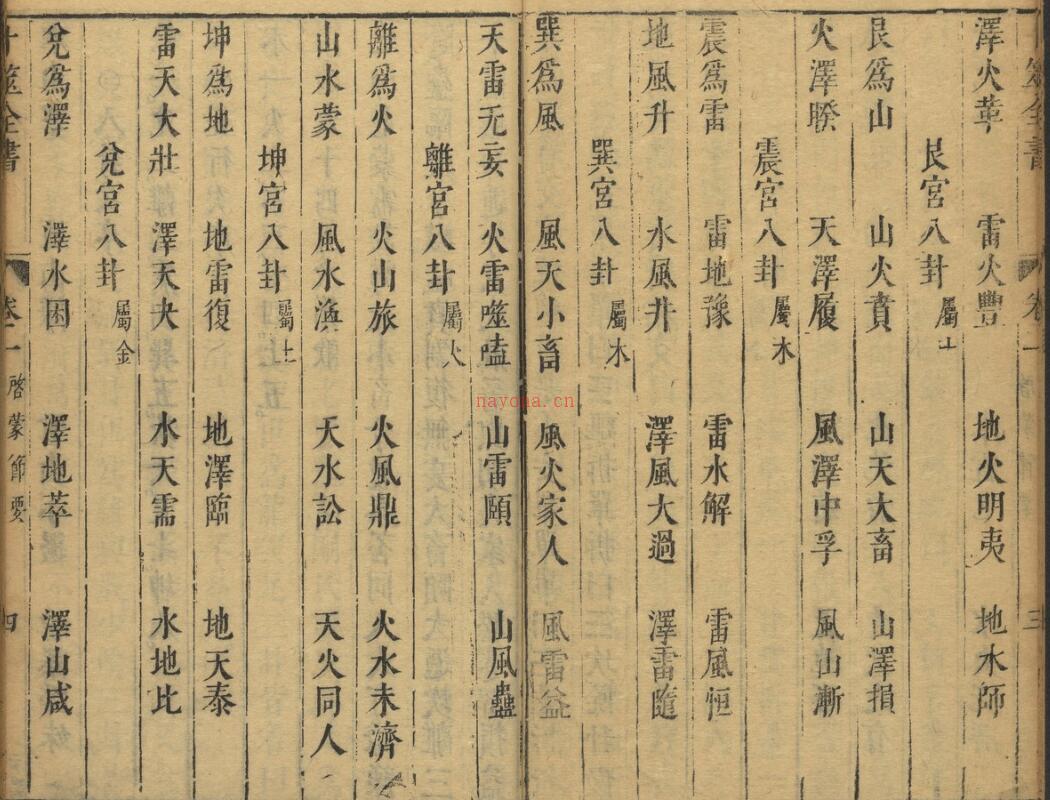 澤火革 雷火豐 地火明夷 地水師
艮宮八卦 屬土
艮爲山 山火賁 山天大畜 山澤損
火澤睽 天澤履 風澤中孚 風山漸
震宮八卦 屬木
震爲雷 雷地豫 雷水解 雷風恒
地風升 水風井 澤風大過 澤雷隨
巽宮八卦 屬木
巽爲風 風天小畜 風火家人 風雷益
天雷无妄 火雷噬嗑 山雷頤 山風蠱
離宮八卦 屬火
離爲火 火山旅 火風鼎 火水未濟
山水蒙 風水渙 天水訟 天火同人
坤宮八卦 屬土
坤爲地 地雷復 地澤臨 地天泰
雷天大壯 澤天夬 水天需 水地比
兌宮八卦 屬金
兌爲澤 澤水困 澤地萃 澤山咸
卷一 啓蒙節要 四
nayona.cn